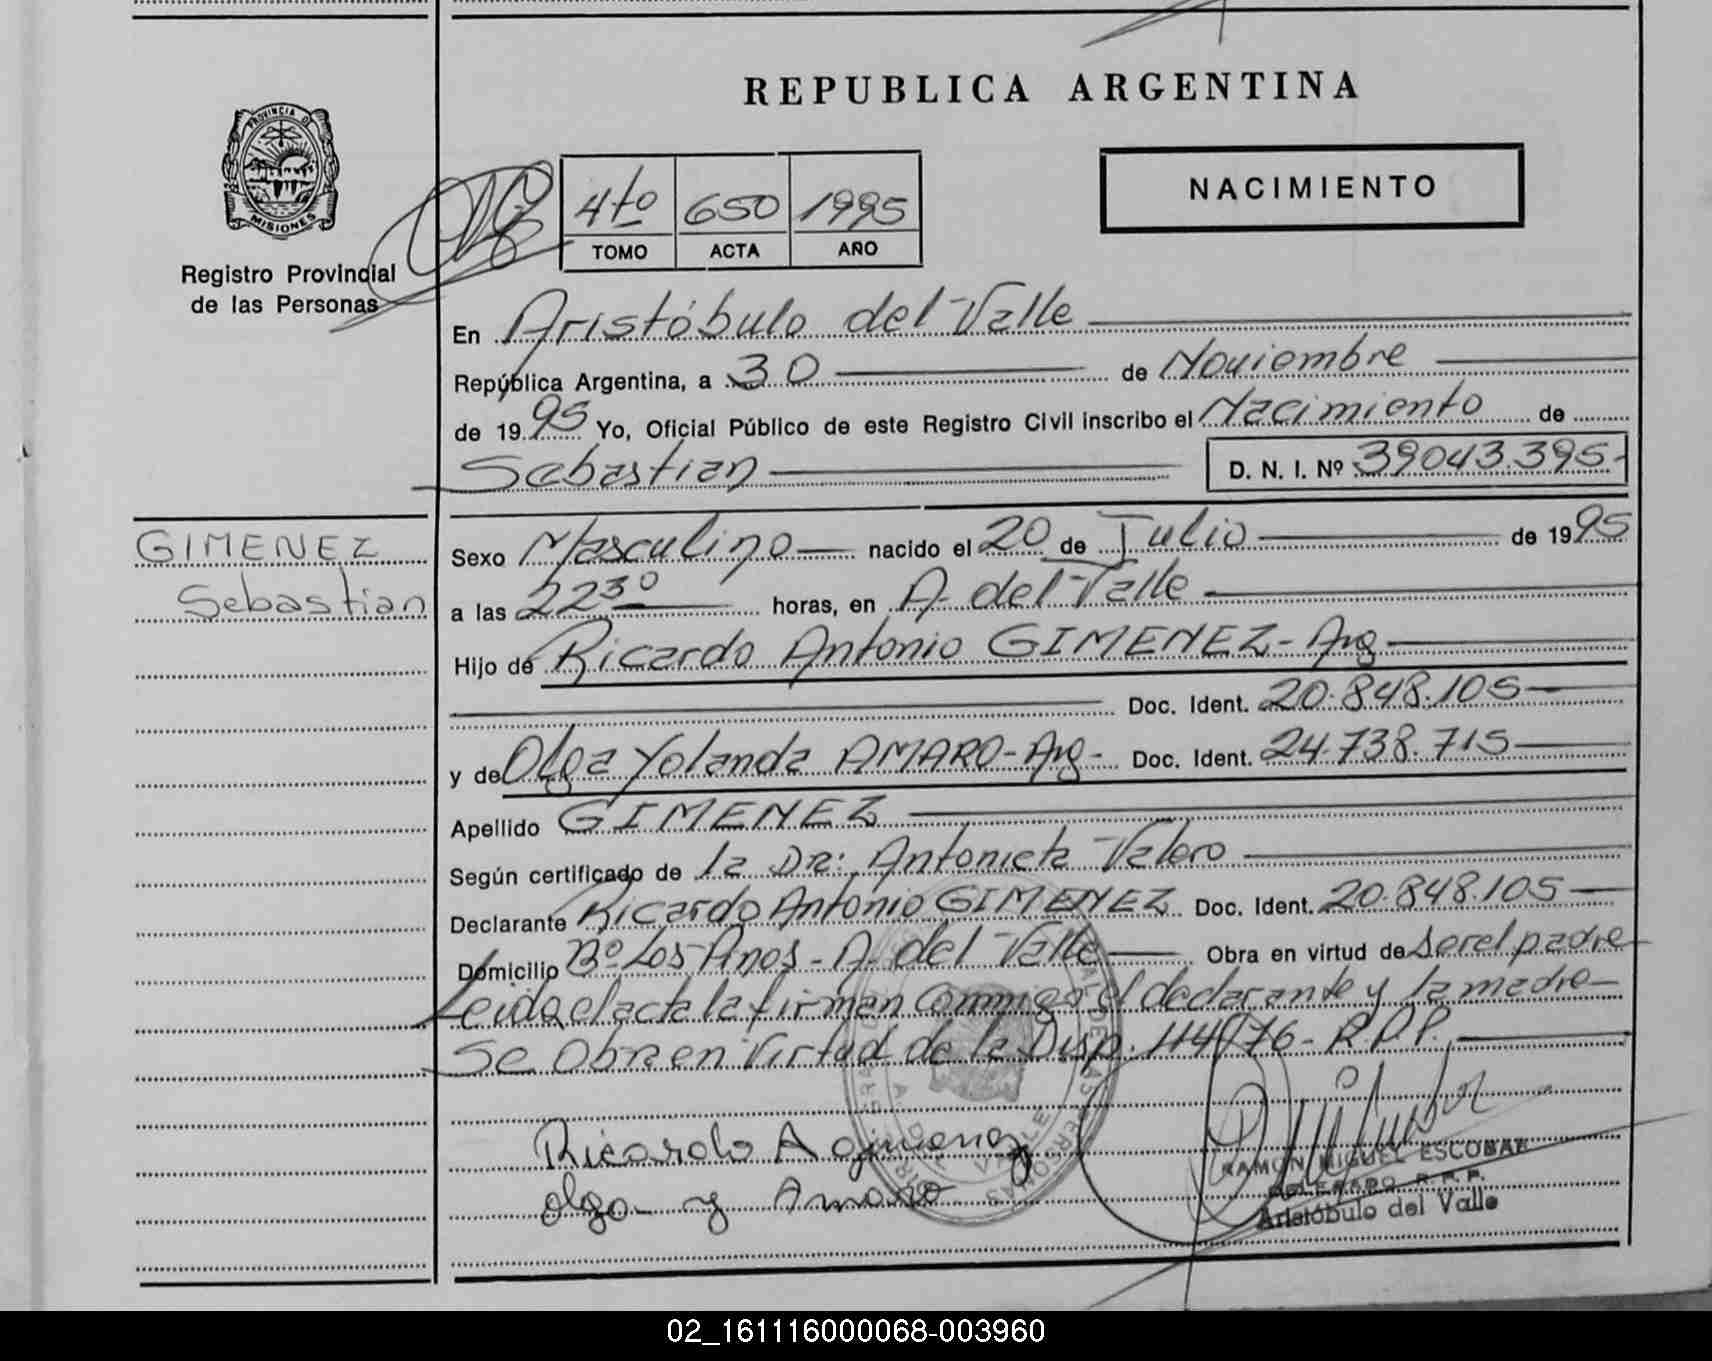 REPUBLICA ARGENTINA
PROVINCIA D
MISIONES
Registro Provincial
de las Personas
4to 650 1995
TOMO ACTA AÑO
NACIMIENTO
En Aristóbulo del Valle
República Argentina, a 30 de Noviembre
de 1995 Yo, Oficial Público de este Registro Civil inscribo el Nacimiento de
Sebastian D. N. I. Nº 39043.395-
GIMENEZ
Sebastian
Sexo Masculino nacido el 20 de Julio de 1995
a las 22 30 horas, en A. del Valle
Hijo de Ricardo Antonio GIMENEZ - Arg
Doc. Ident. 20.848.105
y de Olga Yolanda AMARO - Arg - Doc. Ident. 24.738.715
Apellido GIMENEZ
Según certificado de la DRa: Antonieta Valoro
Declarante Ricardo Antonio GIMENEZ Doc. Ident. 20.848.105
Domicilio Bº Los Pinos - A. del Valle Obra en virtud de ser el padre
Leida el acta la firman conmigo el declarante y la madre
Se Obra en Virtud de la Disp. 114/76 - R.P.P.
Ricardo A gimenez
olga y Amaro
RAMON MIGUEL ESCOBAR
DELEGADO R.P.P.
Aristóbulo del Valle
02_161116000068-003960